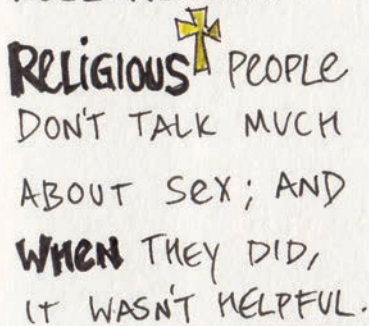 RELIGIOUS PEOPLE
DON'T TALK MUCH
ABOUT SEX; AND
WHEN THEY DID,
IT WASN'T HELPFUL.